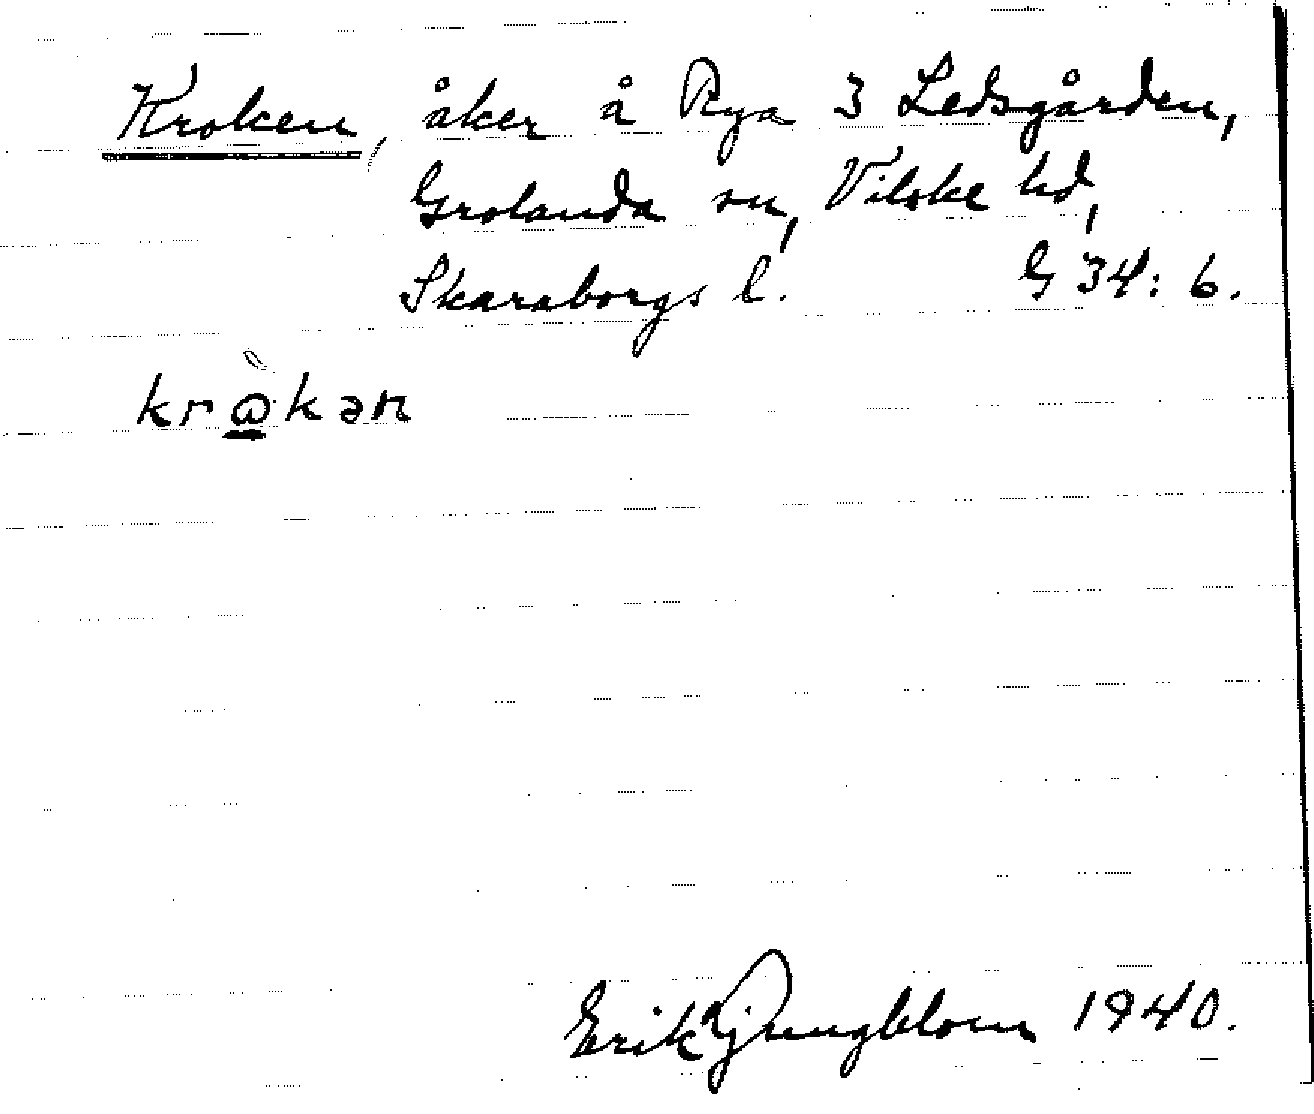 Kroken, åker å Rya 3 Ledsgården,
Grolanda sn, Vilske hd,
Skaraborgs l. G 34: 6.
krὼkən
Erik Ljungblom 1940.